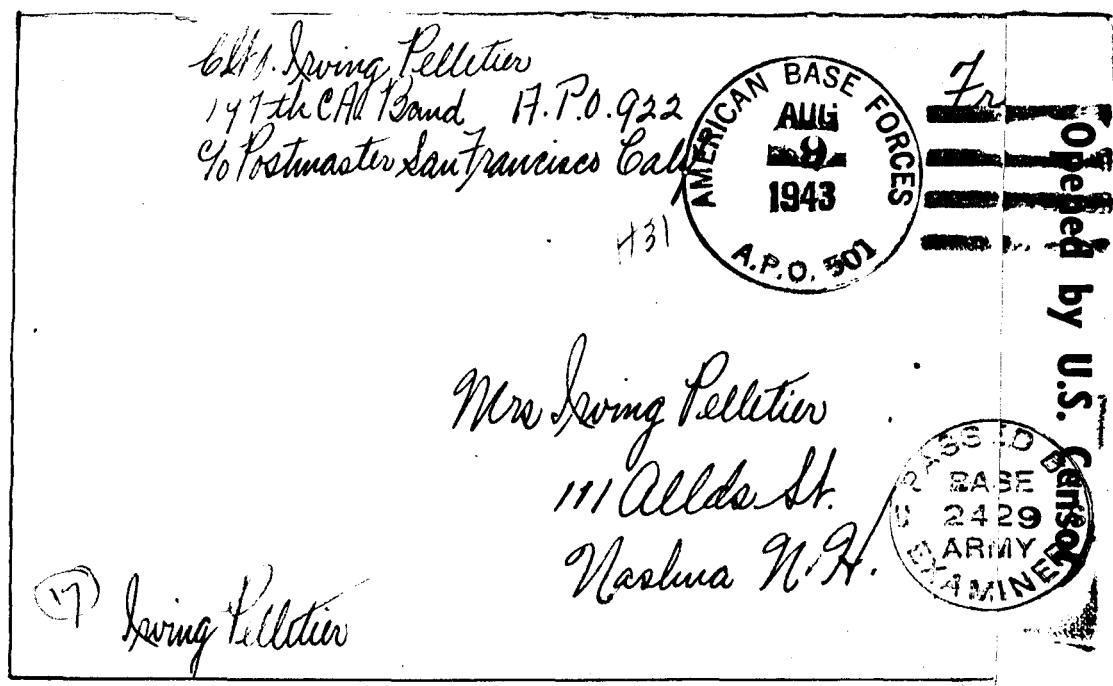 Irving Pelletier
197th CA Band A.P.O. 922
c/o Postmaster San Francisco Calif
AMERICAN BASE FORCES
AUG
9
1943
A.P.O. 501
Fr
431
Opened by U.S. Censor
Mrs Irving Pelletier
111 Allds St.
Nashua N.H.
PASSED BY
BASE
2429
ARMY
EXAMINER
17
Irving Pelletier